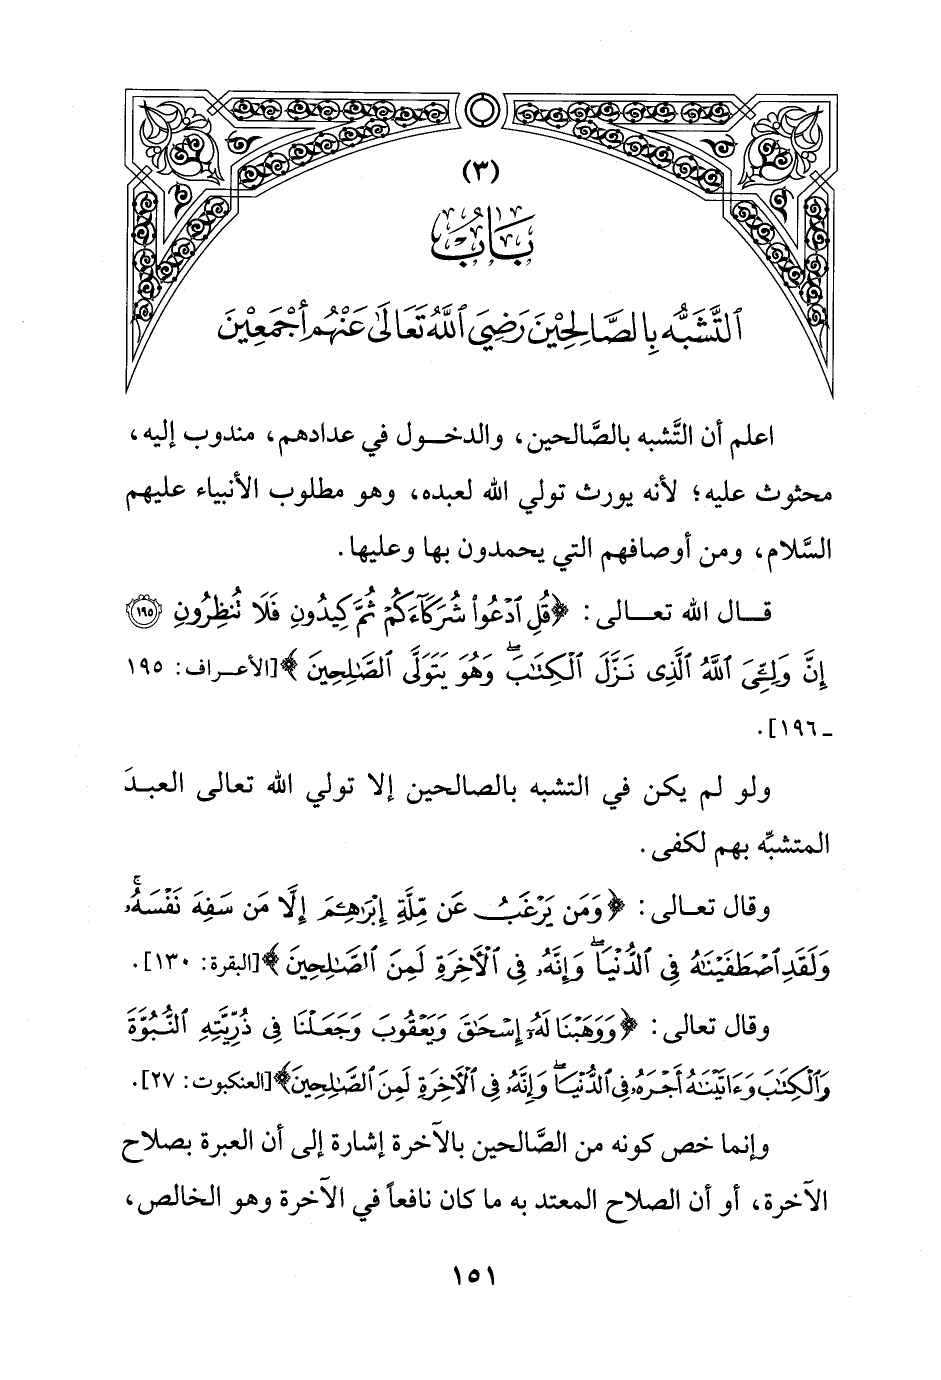 (٣)
بَابُ
التَّشَبُّه بِالصَّالِحِيْنَ رَضِيَ اللَّهُ تَعَالَى عَنْهُم أَجْمَعِيْنَ
اعلم أن التَّشبه بالصَّالحين، والدخول في عدادهم، مندوب إليه،
محثوث عليه؛ لأنه يورث تولي الله لعبده، وهو مطلوب الأنبياء عليهم
السَّلام، ومن أوصافهم التي يحمدون بها وعليها.
قال الله تعالى: ﴿قُلِ ٱدْعُوا۟ شُرَكَآءَكُمْ ثُمَّ كِيدُونِ فَلَا تُنظِرُونِ ١٩٥
إِنَّ وَلِـِّۧىَ ٱللَّهُ ٱلَّذِى نَزَّلَ ٱلْكِتَٰبَ ۖ وَهُوَ يَتَوَلَّى ٱلصَّٰلِحِينَ﴾ [الأعراف: ١٩٥
ـ ١٩٦].
ولو لم يكن في التشبه بالصالحين إلا تولي الله تعالى العبدَ
المتشبِّه بهم لكفى.
وقال تعالى: ﴿وَمَن يَرْغَبُ عَن مِّلَّةِ إِبْرَٰهِـۧمَ إِلَّا مَن سَفِهَ نَفْسَهُۥ ۚ
وَلَقَدِ ٱصْطَفَيْنَٰهُ فِى ٱلدُّنْيَا ۖ وَإِنَّهُۥ فِى ٱلْآخِرَةِ لَمِنَ ٱلصَّٰلِحِينَ﴾ [البقرة: ١٣٠].
وقال تعالى: ﴿وَوَهَبْنَا لَهُۥٓ إِسْحَٰقَ وَيَعْقُوبَ وَجَعَلْنَا فِى ذُرِّيَّتِهِ ٱلنُّبُوَّةَ
وَٱلْكِتَٰبَ وَءَاتَيْنَٰهُ أَجْرَهُۥ فِى ٱلدُّنْيَا ۖ وَإِنَّهُۥ فِى ٱلْآخِرَةِ لَمِنَ ٱلصَّٰلِحِينَ﴾ [العنكبوت: ٢٧].
وإنما خص كونه من الصَّالحين بالآخرة إشارة إلى أن العبرة بصلاح
الآخرة، أو أن الصلاح المعتد به ما كان نافعاً في الآخرة وهو الخالص،
١٥١